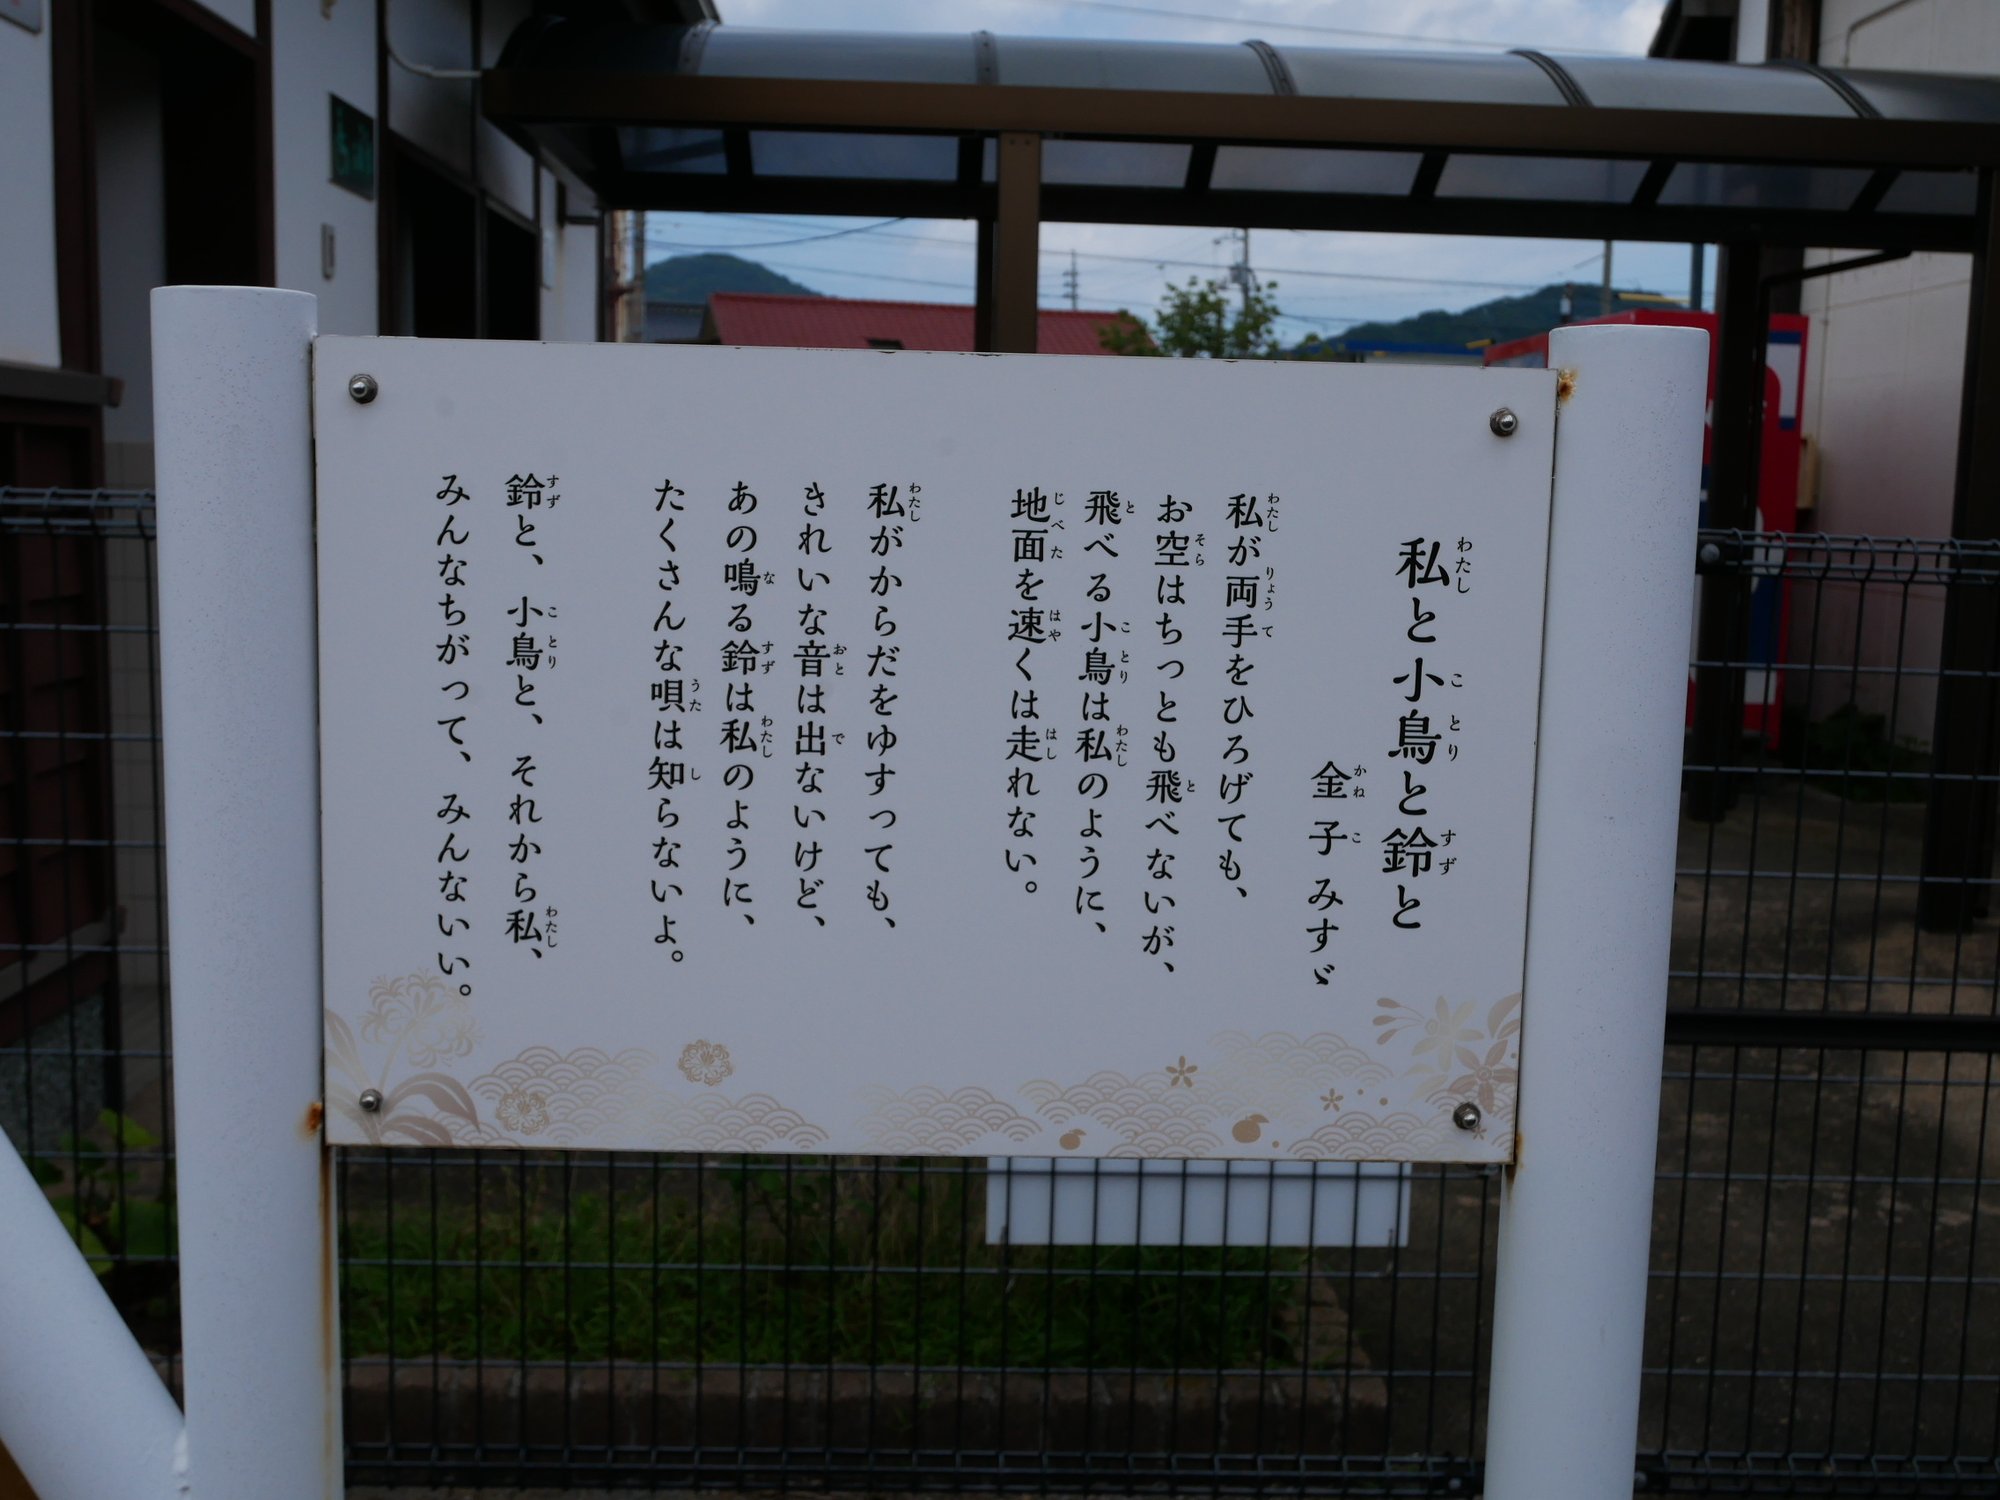 私と小鳥と鈴と
金子みすゞ
私が両手をひろげても、
お空はちっとも飛べないが、
飛べる小鳥は私のように、
地面を速くは走れない。
私がからだをゆすっても、
きれいな音は出ないけど、
あの鳴る鈴は私のように、
たくさんな唄は知らないよ。
鈴と、小鳥と、それから私、
みんなちがって、みんないい。